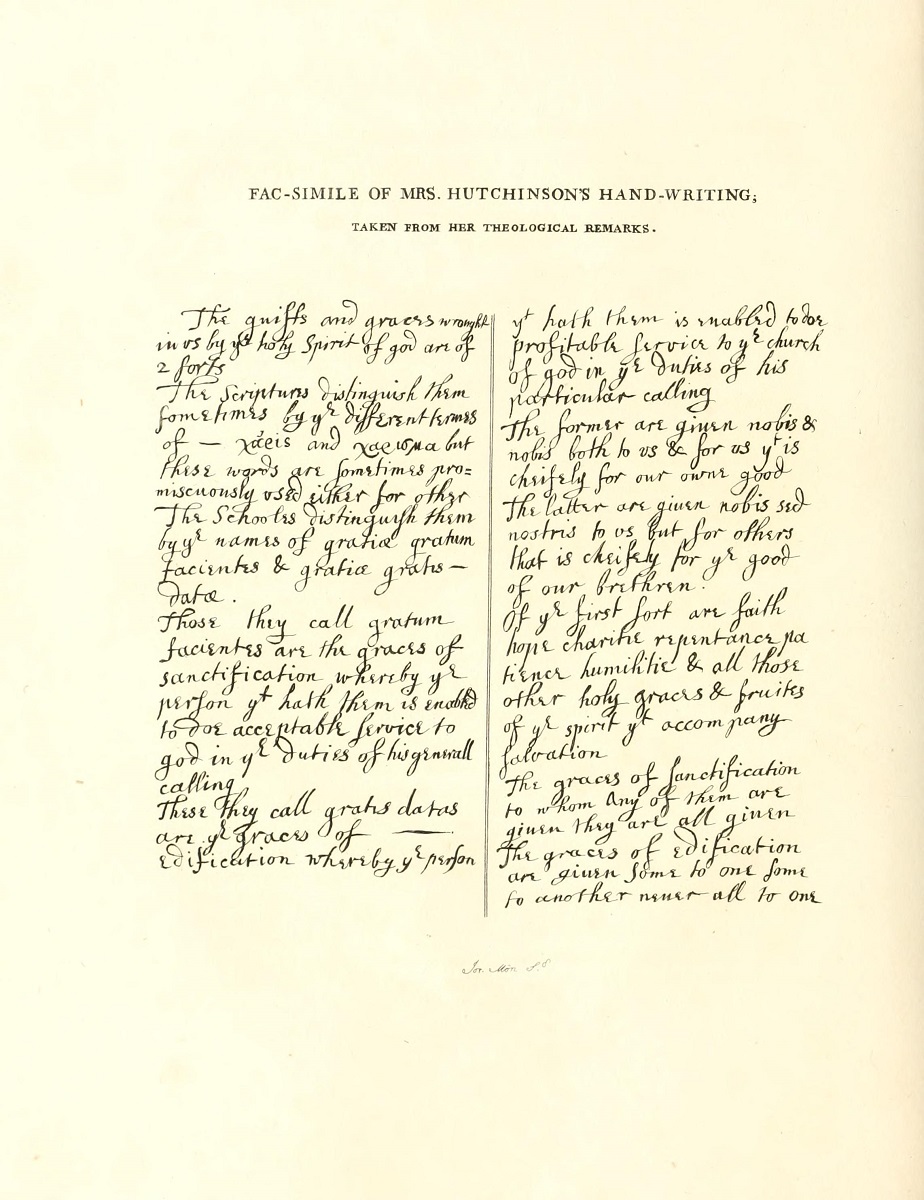 FAC-SIMILE OF MRS. HUTCHINSON'S HAND-WRITING;
TAKEN FROM HER THEOLOGICAL REMARKS.
The guifts and graces wrought
in vs by yᵉ holy Spirit of god are of
2 sorts
The Scriptures distinguish them
sometimes by yᵉ different termes
of — χάρις and χαρισμα but
these words are sometimes pro=
miscuously vsed either for other
The Schooles distinguish them
by yᵉ names of gratiæ gratum
facientes & gratiæ gratis —
datæ .
Those they call gratum
facientes are the graces of
sanctification whereby yᵉ
person yᵗ hath them is enabled
to doe acceptable service to
god in yᵉ duties of his generall
calling
These they call gratis datas
are yᵉ graces of —
Edification whereby yᵉ person
yᵗ hath them is enabled to doe
profitable service to yᵉ church
of god in yᵉ duties of his
particular calling
The former are given nobis &
nobis both to vs & for vs yᵗ is
cheifely for our owne good
The latter are given nobis sed
nostris to vs but for others
that is cheifely for yᵉ good
of our brethren .
Of yᵉ first sort are faith
hope charitie repentance pa
tience humilitie & all those
other holy graces & fruites
of yᵉ spirit yᵗ accompany
salvation
The graces of sanctification
to whom any of them are
given they are all given
The graces of Edification
are given some to one some
to another never all to one